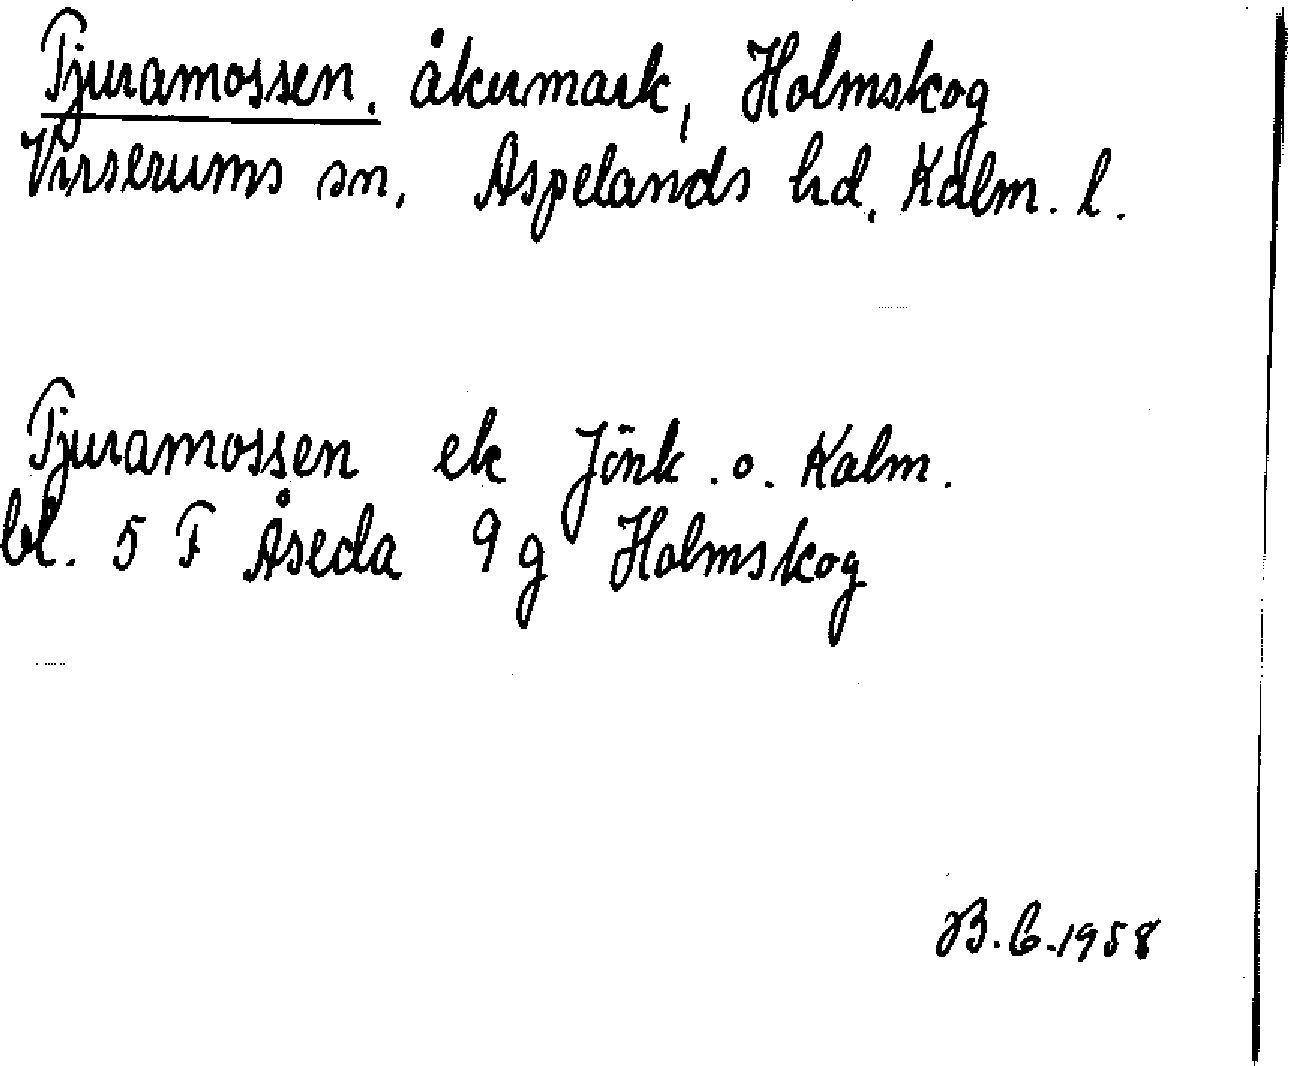 Tjuramossen, åkermark, Holmskog
Virserums sn, Aspelands hd, Kalm. l.
Tjuramossen ek Jönk. o. Kalm.
bl. 5 F Åseda 9 g Holmskog
B. C. 1958